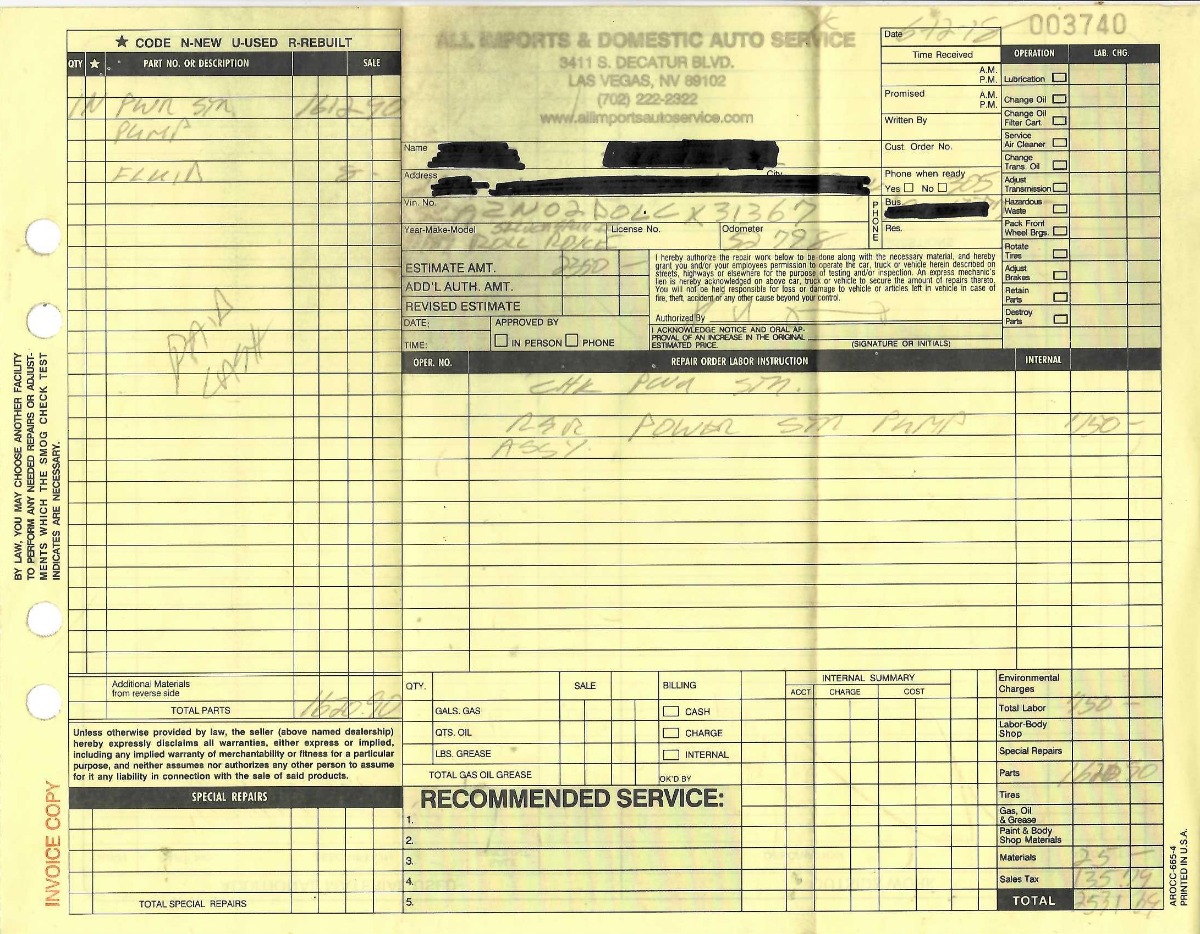 003740
★ CODE N-NEW U-USED R-REBUILT
QTY ★ PART NO. OR DESCRIPTION SALE
1 N PWR STR 1612 90
PUMP
FLUID 8 -
PAID
CASH
BY LAW, YOU MAY CHOOSE ANOTHER FACILITY
TO PERFORM ANY NEEDED REPAIRS OR ADJUST-
MENTS WHICH THE SMOG CHECK TEST
INDICATES ARE NECESSARY.
Additional Materials
from reverse side
TOTAL PARTS 1620.90
Unless otherwise provided by law, the seller (above named dealership)
hereby expressly disclaims all warranties, either express or implied,
including any implied warranty of merchantability or fitness for a particular
purpose, and neither assumes nor authorizes any other person to assume
for it any liability in connection with the sale of said products.
SPECIAL REPAIRS
TOTAL SPECIAL REPAIRS
INVOICE COPY
ALL IMPORTS & DOMESTIC AUTO SERVICE
3411 S. DECATUR BLVD.
LAS VEGAS, NV 89102
(702) 222-2322
www.allimportsautoservice.com
Name
Address City
Vin. No.
AZN02DOLCX31367
Year-Make-Model License No. Odometer
ROLL ROYCE 52798
ESTIMATE AMT. 2350 -
ADD'L AUTH. AMT.
REVISED ESTIMATE
DATE: APPROVED BY
TIME: IN PERSON PHONE
Date
Time Received
A.M.
P.M.
Promised A.M.
P.M.
Written By
Cust. Order No.
Phone when ready
Yes No 305
PHONE
Bus.
Res.
I hereby authorize the repair work below to be done along with the necessary material, and hereby
grant you and/or your employees permission to operate the car, truck or vehicle herein described on
streets, highways or elsewhere for the purpose of testing and/or inspection. An express mechanic's
lien is hereby acknowledged on above car, truck or vehicle to secure the amount of repairs thereto.
You will not be held responsible for loss or damage to vehicle or articles left in vehicle in case of
fire, theft, accident or any other cause beyond your control.
Authorized By
I ACKNOWLEDGE NOTICE AND ORAL AP-
PROVAL OF AN INCREASE IN THE ORIGINAL
ESTIMATED PRICE.
(SIGNATURE OR INITIALS)
OPERATION LAB. CHG.
Lubrication
Change Oil
Change Oil
Filter Cart
Service
Air Cleaner
Change
Trans. Oil
Adjust
Transmission
Hazardous
Waste
Pack Front
Wheel Brgs.
Rotate
Tires
Adjust
Brakes
Retain
Parts
Destroy
Parts
OPER. NO. REPAIR ORDER LABOR INSTRUCTION INTERNAL
CHK PWR STR.
R&R POWER STR PUMP 750 -
ASSY.
QTY. SALE BILLING
GALS. GAS CASH
QTS. OIL CHARGE
LBS. GREASE INTERNAL
TOTAL GAS OIL GREASE OK'D BY
INTERNAL SUMMARY
ACCT CHARGE COST
RECOMMENDED SERVICE:
1.
2.
3.
4.
5.
Environmental
Charges
Total Labor 750 -
Labor-Body
Shop
Special Repairs
Parts 1620 90
Tires
Gas, Oil
& Grease
Paint & Body
Shop Materials
Materials 25 -
Sales Tax 135.79
TOTAL 2531 69
AROCC-665-4
PRINTED IN U.S.A.